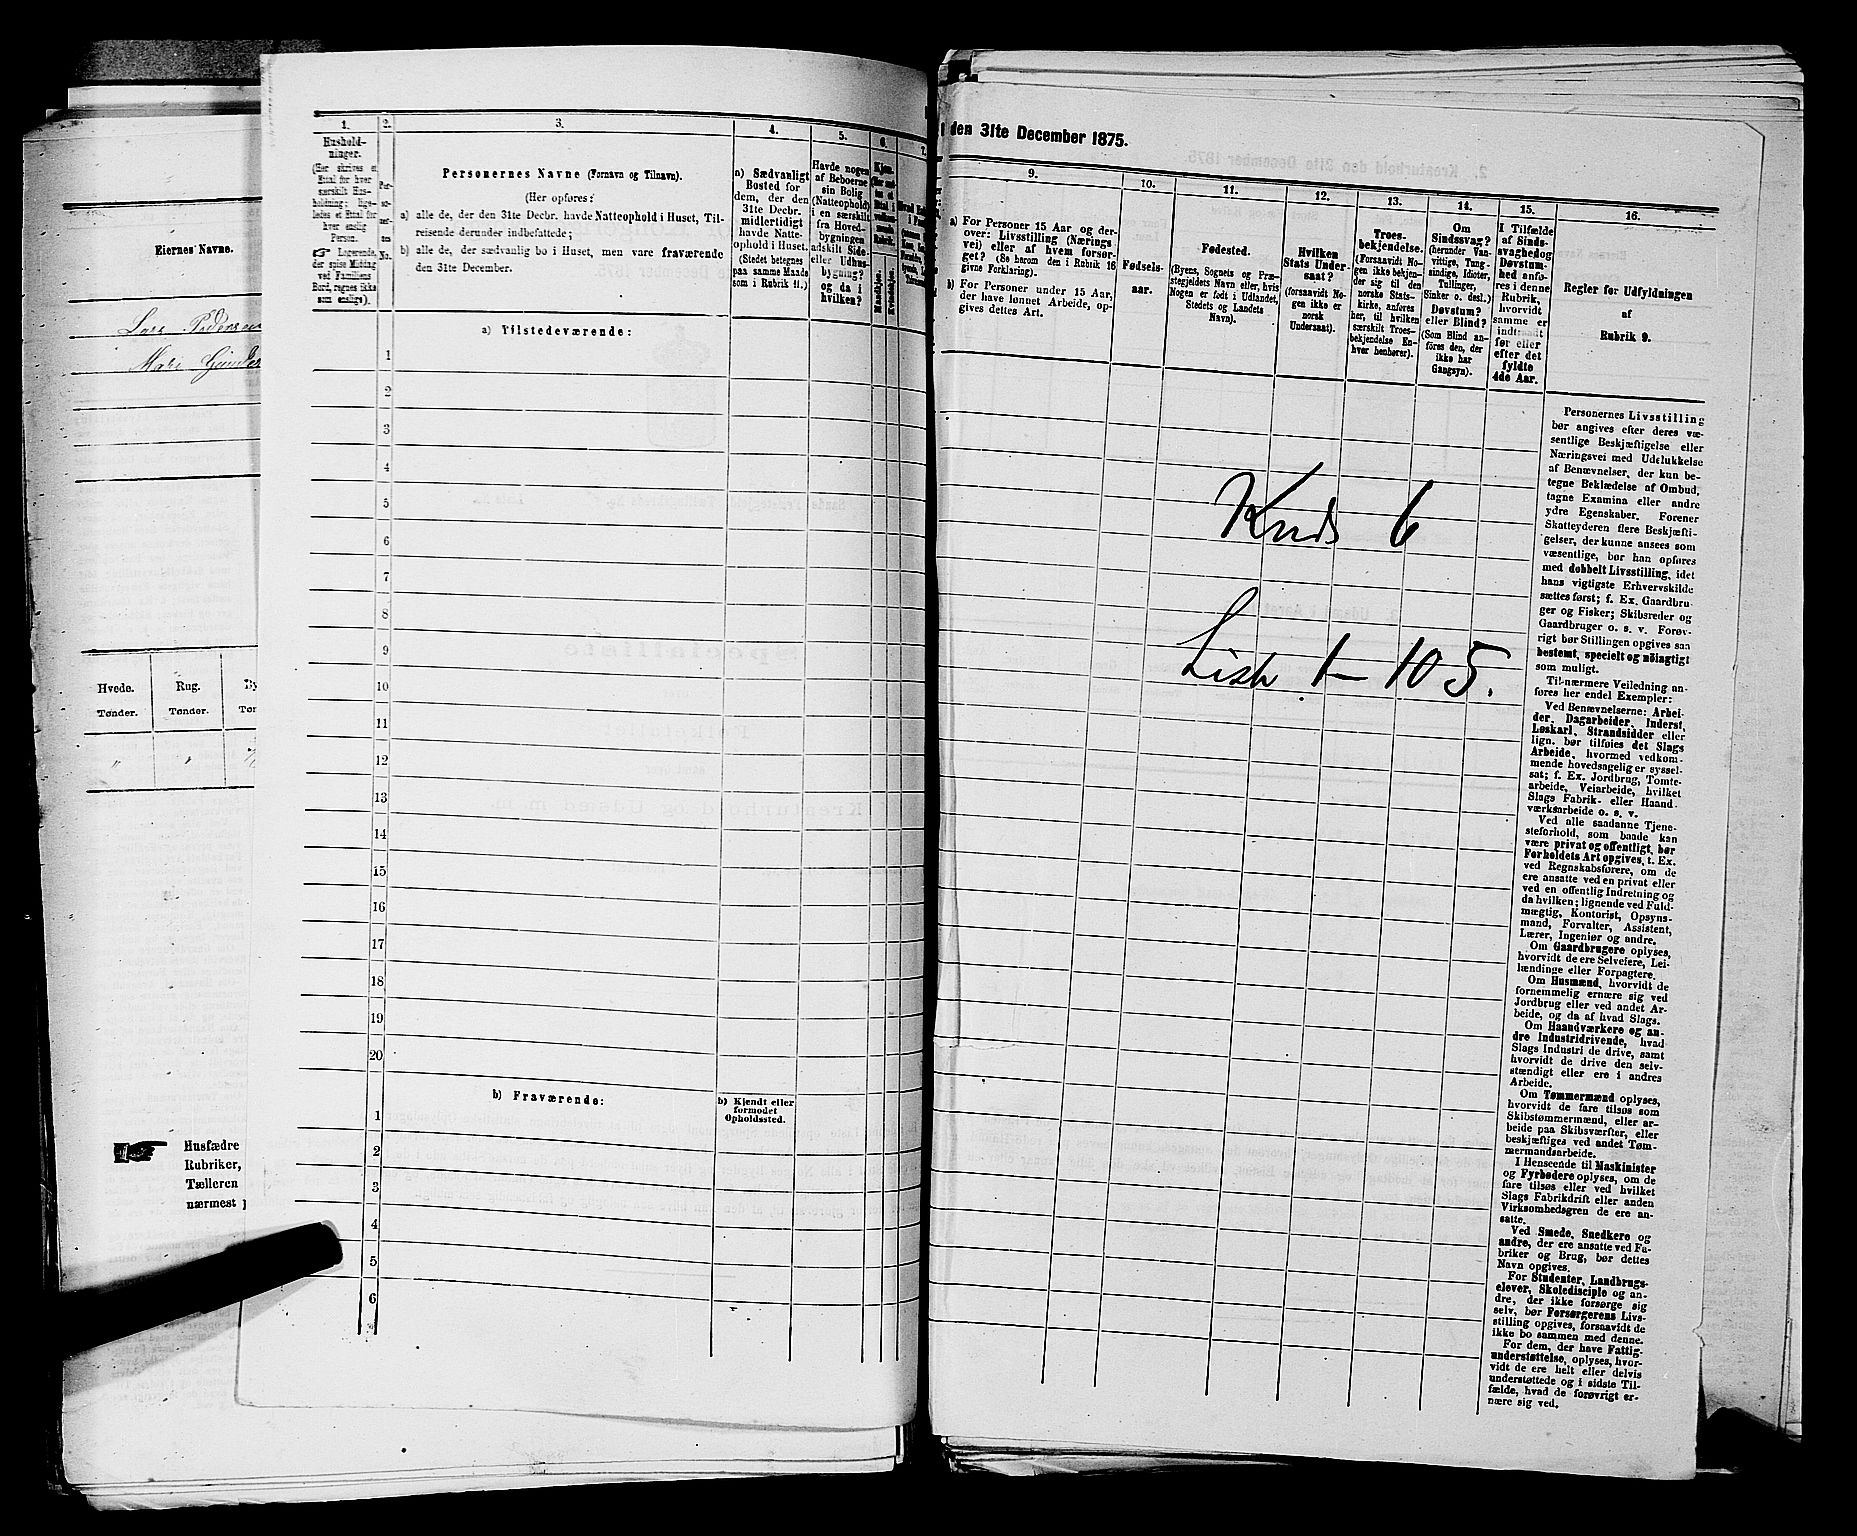 Eiernes Navne.
Lars Pedersen
Mari Gunder
Hvede.
Rug.
By
Tønder.
Tønder.
Tør
Husfædre
Rubriker,
Tælleren
nærmest
1.
2.
3.
4.
5.
6.
7.
Hushold-
ninger.
(Her skrives et
Ettal for hver
særskilt Hus-
holdning; lige-
ledes et Ettal for
hver enslig
Person.
☞ Logerende,
der spise Middag
ved Familiens
Bord, regnes ikke
som enslige).
Per-
so-
ner-
nes
No.
Personernes Navne (Fornavn og Tilnavn).
(Her opføres:
a) alle de, der den 31te Decbr. havde Natteophold i Huset, Til-
reisende derunder indbefattede;
b) alle de, der sædvanlig bo i Huset, men vare fraværende
den 31te December.
a) Sædvanligt
Bosted for
dem, der den
31te Decbr.
midlertidigt
havde Natte-
ophold i Huset.
(Stedet betegnes
paa samme Maade
som i Rubrik 11.)
Havde nogen
af Beboerne
sin Bolig
(Natteophold)
i en særskilt
fra Hoved-
bygningen
adskilt Side-
eller Udhus-
bygning?
og da i
hvilken?
Kjøn.
Mandkjøn.
Kvindekjøn.
a) Tilstedeværende:
1
2
3
4
5
6
7
8
9
10
11
12
13
14
15
16
17
18
19
20
b) Fraværende:
b) Kjendt eller
formodet
Opholdssted.
1
2
3
4
5
6
den 31te December 1875.
9.
10.
11.
12.
13.
14.
15.
16.
a) For Personer 15 Aar og der-
over: Livsstilling (Nærings-
vei) eller af hvem forsør-
get? (Se herom den i Rubrik 16
givne Forklaring).
b) For Personer under 15 Aar,
der have lønnet Arbeide, op-
gives dettes Art.
Fødsels-
aar.
Fødested.
(Byens, Sognets og Præ-
stegjeldets Navn eller, hvis
Nogen er født i Udlandet,
Stedets og Landets
Navn).
Hvilken
Stats Under-
saat?
(forsaavidt No-
gen ikke er
norsk
Undersaat).
Troes-
bekjendelse.
(Forsaavidt No-
gen ikke bekjen-
der sig til den
norske Stats-
kirke, anføres
her, til hvilken
særskilt Troes-
bekjendelse En-
hver henhører).
Om
Sindssvag?
(herunder Van-
vittige, Tung-
sindige, Idioter,
Tullinger,
Sinker o. desl.)
Døvstum?
eller Blind?
(Som Blind an-
føres den, der
ikke har
Gangsyn).
I Tilfælde
af Sinds-
svaghed og
Døvstum-
hed anfø-
res i denne
Rubrik,
hvorvidt
samme er
indtraadt
før eller
efter det
fyldte
4de Aar.
Regler for Udfyldningen
af
Rubrik 9.
Kreds 6
Liste 1 – 105.
Personernes Livsstilling
bør angives efter deres væ-
sentlige Beskjæftigelse eller
Næringsvei med Udelukkelse
af Benævnelser, der kun be-
tegne Beklædelse af Ombud,
tagne Examina eller andre
ydre Egenskaber. Forener
Skatteyderen flere Beskjæfti-
gelser, der kunne ansees som
væsentlige, bør han opføres
med dobbelt Livsstilling, idet
hans vigtigste Erhvervskilde
sættes først; f. Ex. Gaardbru-
ger og Fisker; Skibsreder og
Gaardbruger o. s. v. Forøv-
rigt bør Stillingen opgives saa
bestemt, specielt og nöiagtigt
som muligt.
Til nærmere Veiledning an-
føres her endel Exempler:
Ved Benævnelserne: Arbei-
der, Dagarbeider, Inderst,
Løskarl, Strandsidder eller
lign. bør tilføies det Slags
Arbeide, hvormed vedkom-
mende hovedsagelig er syssel-
sat; f. Ex. Jordbrug, Tomte-
arbeide, Veiarbeide, hvilket
Slags Fabrik- eller Haand-
værksarbeide o. s. v.
Ved alle saadanne Tjene-
steforhold, som baade kan
være privat og offentligt, bør
Forholdets Art opgives, t. Ex.
ved Regnskabsførere, om de
ere ansatte ved en privat eller
ved en offentlig Indretning og
da hvilken; lignende ved Fuld-
mægtig, Kontorist, Opsyns-
mand, Forvalter, Assistent,
Lærer, Ingeniør og andre.
Om Gaardbrugere oplyses,
hvorvidt de ere Selveiere, Lei-
lændinge eller Forpagtere.
Om Husmænd, hvorvidt de
fornemmelig ernære sig ved
Jordbrug eller ved andet Ar-
beide, og da af hvad Slags.
Om Haandværkere og an-
dre Industridrivende, hvad
Slags Industri de drive, samt
hvorvidt de drive den selv-
stændigt eller ere i andres
Arbeide.
Om Tømmermænd oplyses,
hvorvidt de fare tilsøs som
Skibstømmermænd, eller ar-
beide paa Skibsværfter, eller
beskjæftiges ved andet Tøm-
mermandsarbeide.
I Henseende til Maskinister
og Fyrbødere oplyses, om de
fare tilsøs eller ved hvilket
Slags Fabrikdrift eller anden
Virksomhedsgren de ere an-
satte.
Ved Smede, Snedkere og
andre, der ere ansatte ved Fa-
briker og Brug, bør dettes
Navn opgives.
For Studenter, Landbrugs-
elever, Skoledisciple og an-
dre, der ikke forsørge sig
selv, bør Forsørgerens Livs-
stilling opgives, forsaavidt de
ikke bo sammen med denne.
For dem, der have Fattig-
understøttelse, oplyses, hvor-
vidt de ere helt eller delvis
understøttede og i sidste Til-
fælde, hvad de forøvrigt er-
nære sig ved.